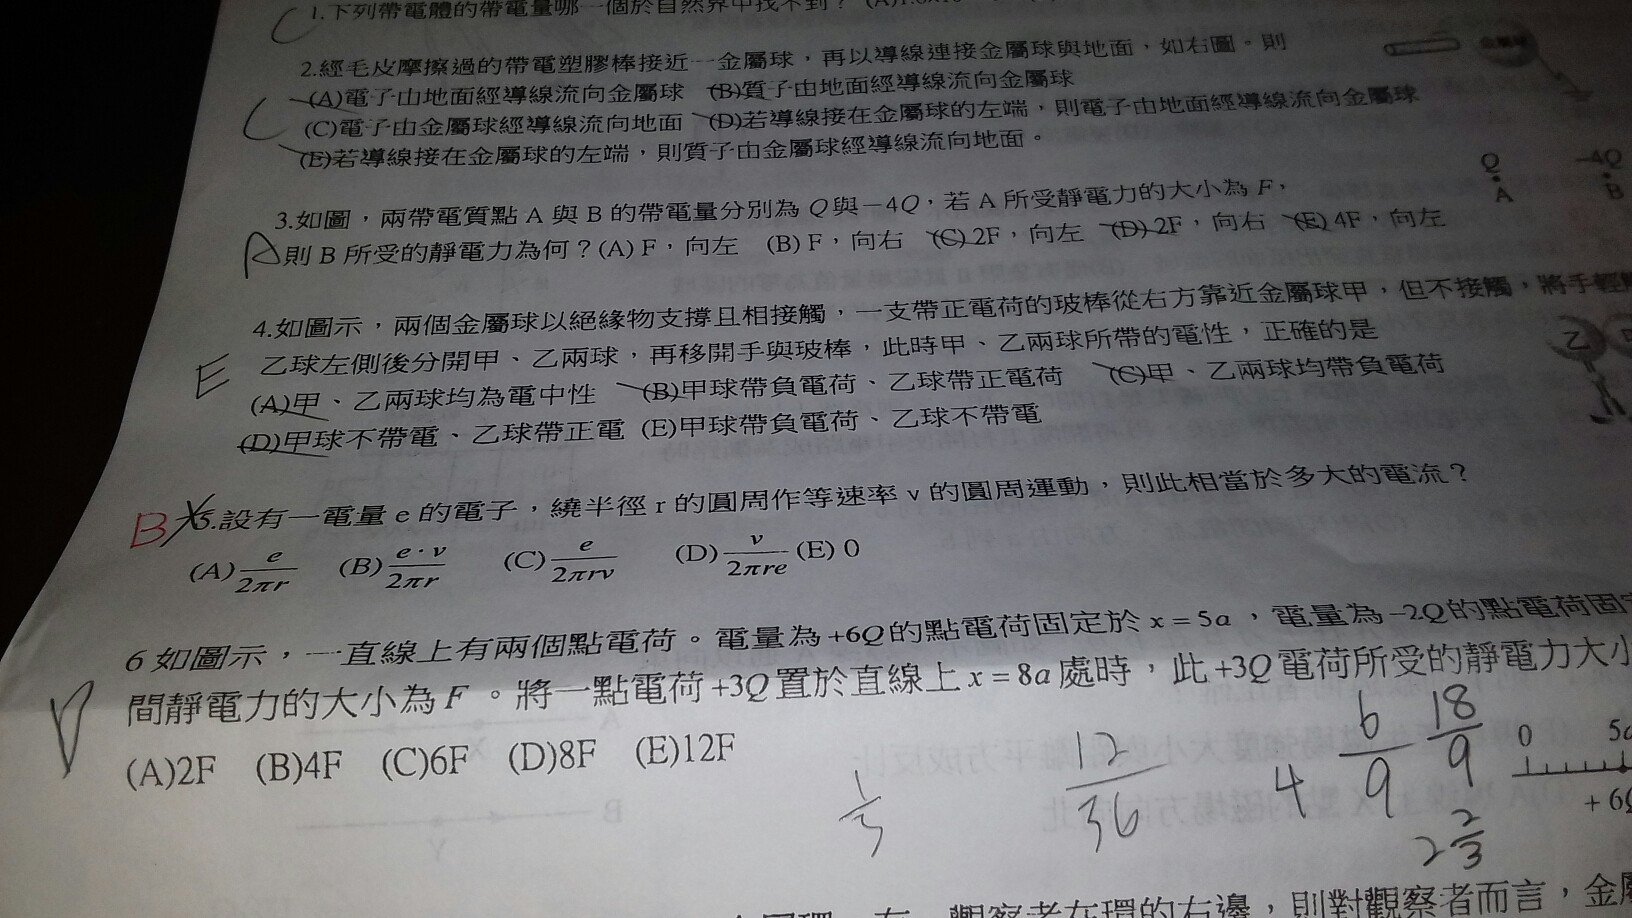 C 1.下列帶電體的帶電量哪一個於自然界中找不到？
2.經毛皮摩擦過的帶電塑膠棒接近一金屬球，再以導線連接金屬球與地面，如右圖。則
(A)電子由地面經導線流向金屬球 (B)質子由地面經導線流向金屬球
C (C)電子由金屬球經導線流向地面 (D)若導線接在金屬球的左端，則電子由地面經導線流向金屬球
(E)若導線接在金屬球的左端，則質子由金屬球經導線流向地面。
金屬球
Q -4Q
A B
3.如圖，兩帶電質點 A 與 B 的帶電量分別為 Q與－4Q，若 A 所受靜電力的大小為 F，
A 則 B 所受的靜電力為何？(A) F，向左 (B) F，向右 (C) 2F，向左 (D) 2F，向右 (E) 4F，向左
4.如圖示，兩個金屬球以絕緣物支撐且相接觸，一支帶正電荷的玻棒從右方靠近金屬球甲，但不接觸，將手輕觸
E 乙球左側後分開甲、乙兩球，再移開手與玻棒，此時甲、乙兩球所帶的電性，正確的是
(A)甲、乙兩球均為電中性 (B)甲球帶負電荷、乙球帶正電荷 (C)甲、乙兩球均帶負電荷
(D)甲球不帶電、乙球帶正電 (E)甲球帶負電荷、乙球不帶電
乙
B 5.設有一電量 e 的電子，繞半徑 r 的圓周作等速率 v 的圓周運動，則此相當於多大的電流？
(A) e/2πr (B) e·v/2πr (C) e/2πrv (D) v/2πre (E) 0
6 如圖示，一直線上有兩個點電荷。電量為 +6Q 的點電荷固定於 x = 5a，電量為 -2Q 的點電荷固定
間靜電力的大小為 F。將一點電荷 +3Q 置於直線上 x = 8a 處時，此 +3Q 電荷所受的靜電力大小
(A)2F (B)4F (C)6F (D)8F (E)12F
1/3 12/36 4 6/9 18/9
2 2/3
0 5a
+6Q
觀察者在環的右邊，則對觀察者而言，金屬